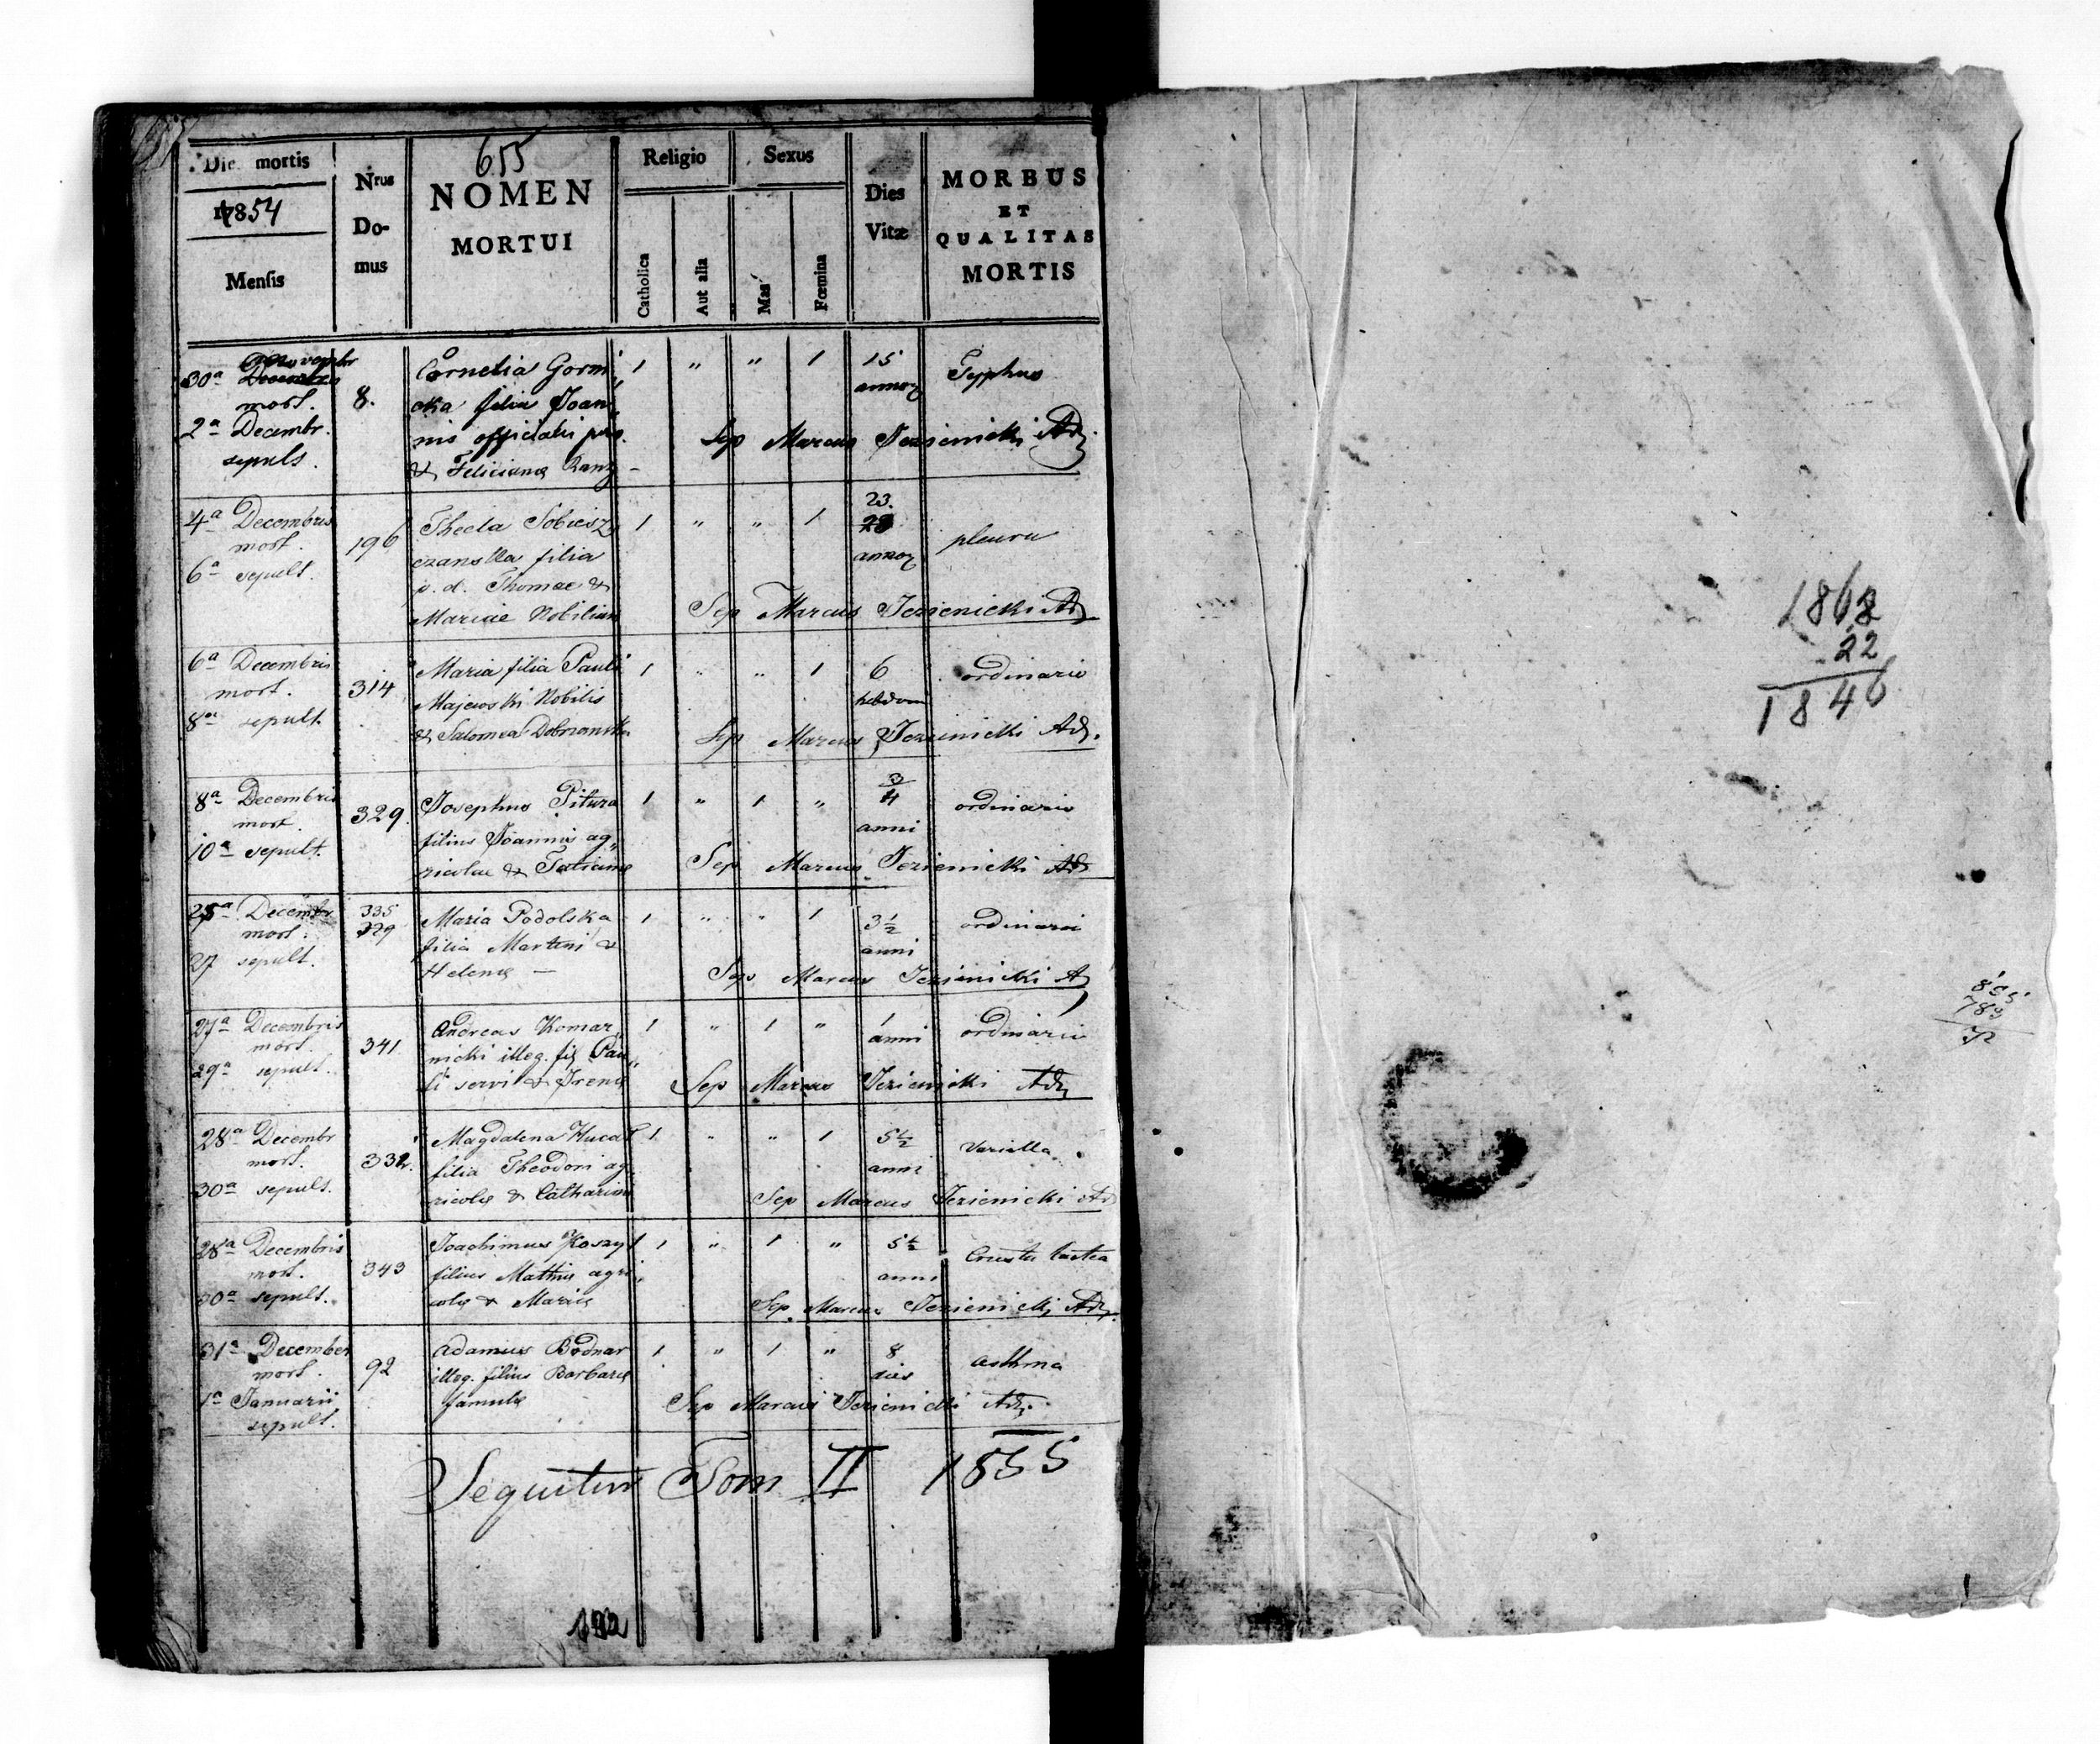 655
Die mortis
1854
Mensis
Nrus
Do-
mus
NOMEN
MORTUI
Religio
Catholica
Aut alia
Sexus
Mas
Fœmina
Dies
Vitæ
MORBUS
ET
QUALITAS
MORTIS
30a
mort.
2a Decembr.
sepult.
8.
Cornelia Gorni
cka filia Joan
nis officialis
& Felicianæ
1 " " 1
15
annor
Typhus
Sep Marcus Jezienicki Adj
4a Decembris
mort.
6a sepult.
196
Thecla Sobiesz
czanska filia
p. d. Thomae &
Mariae Nobilium
1 " " 1
23.
annor
pleura
Sep Marcus Jezienicki Adj
6a Decembris
mort.
8a sepult
314
Maria filia Pauli
Majewski Nobilis
& Salomea
1 " " 1
6
hebdom
ordinario
Sep Marcus Jezienicki Adj.
8a Decembris
mort.
10a sepult.
329.
Josephus Pitura
filius Joannis ag
ricolae & Tatianæ
1 " 1 "
3/4
anni
ordinario
Sep Marcus Jezienicki Adj
25a Decembr
mort.
27 sepult.
335
329
Maria Podolska
filia Martini &
Helenæ —
1 " " 1
3 1/2
anni
ordinario
Sep Marcus Jezienicki Adj
27a Decembris
mort.
29a sepult.
341
Andreas Komar
nicki illeg. fil Pau
li servi & Irenæ
1 " 1 "
1
anni
ordinario
Sep Marcus Jezienicki Adj
28a Decembr
mort.
30a sepult.
332.
Magdalena Hucał
filia Theodori ag
ricolæ & Catharinæ
1 " " 1
5 1/2
anni
Sep Marcus Jezienicki Ad
28a Decembris
mort.
30a sepult.
343
Joachimus
filius Mathiæ agri
colæ & Mariæ
1 " 1 "
5 1/2
anni
Crusta lactea
Sep Marcus Jezienicki Adj.
31a December
mort.
1a Januarii
sepult.
92
Adamus Bodnar
illeg. filius Barbaræ
famulæ
1 " 1 "
8
dies
asthma
Sep Marcus Jezienicki Adj.
Sequitur Tom II 1855
192
1868
22
1846
855
789